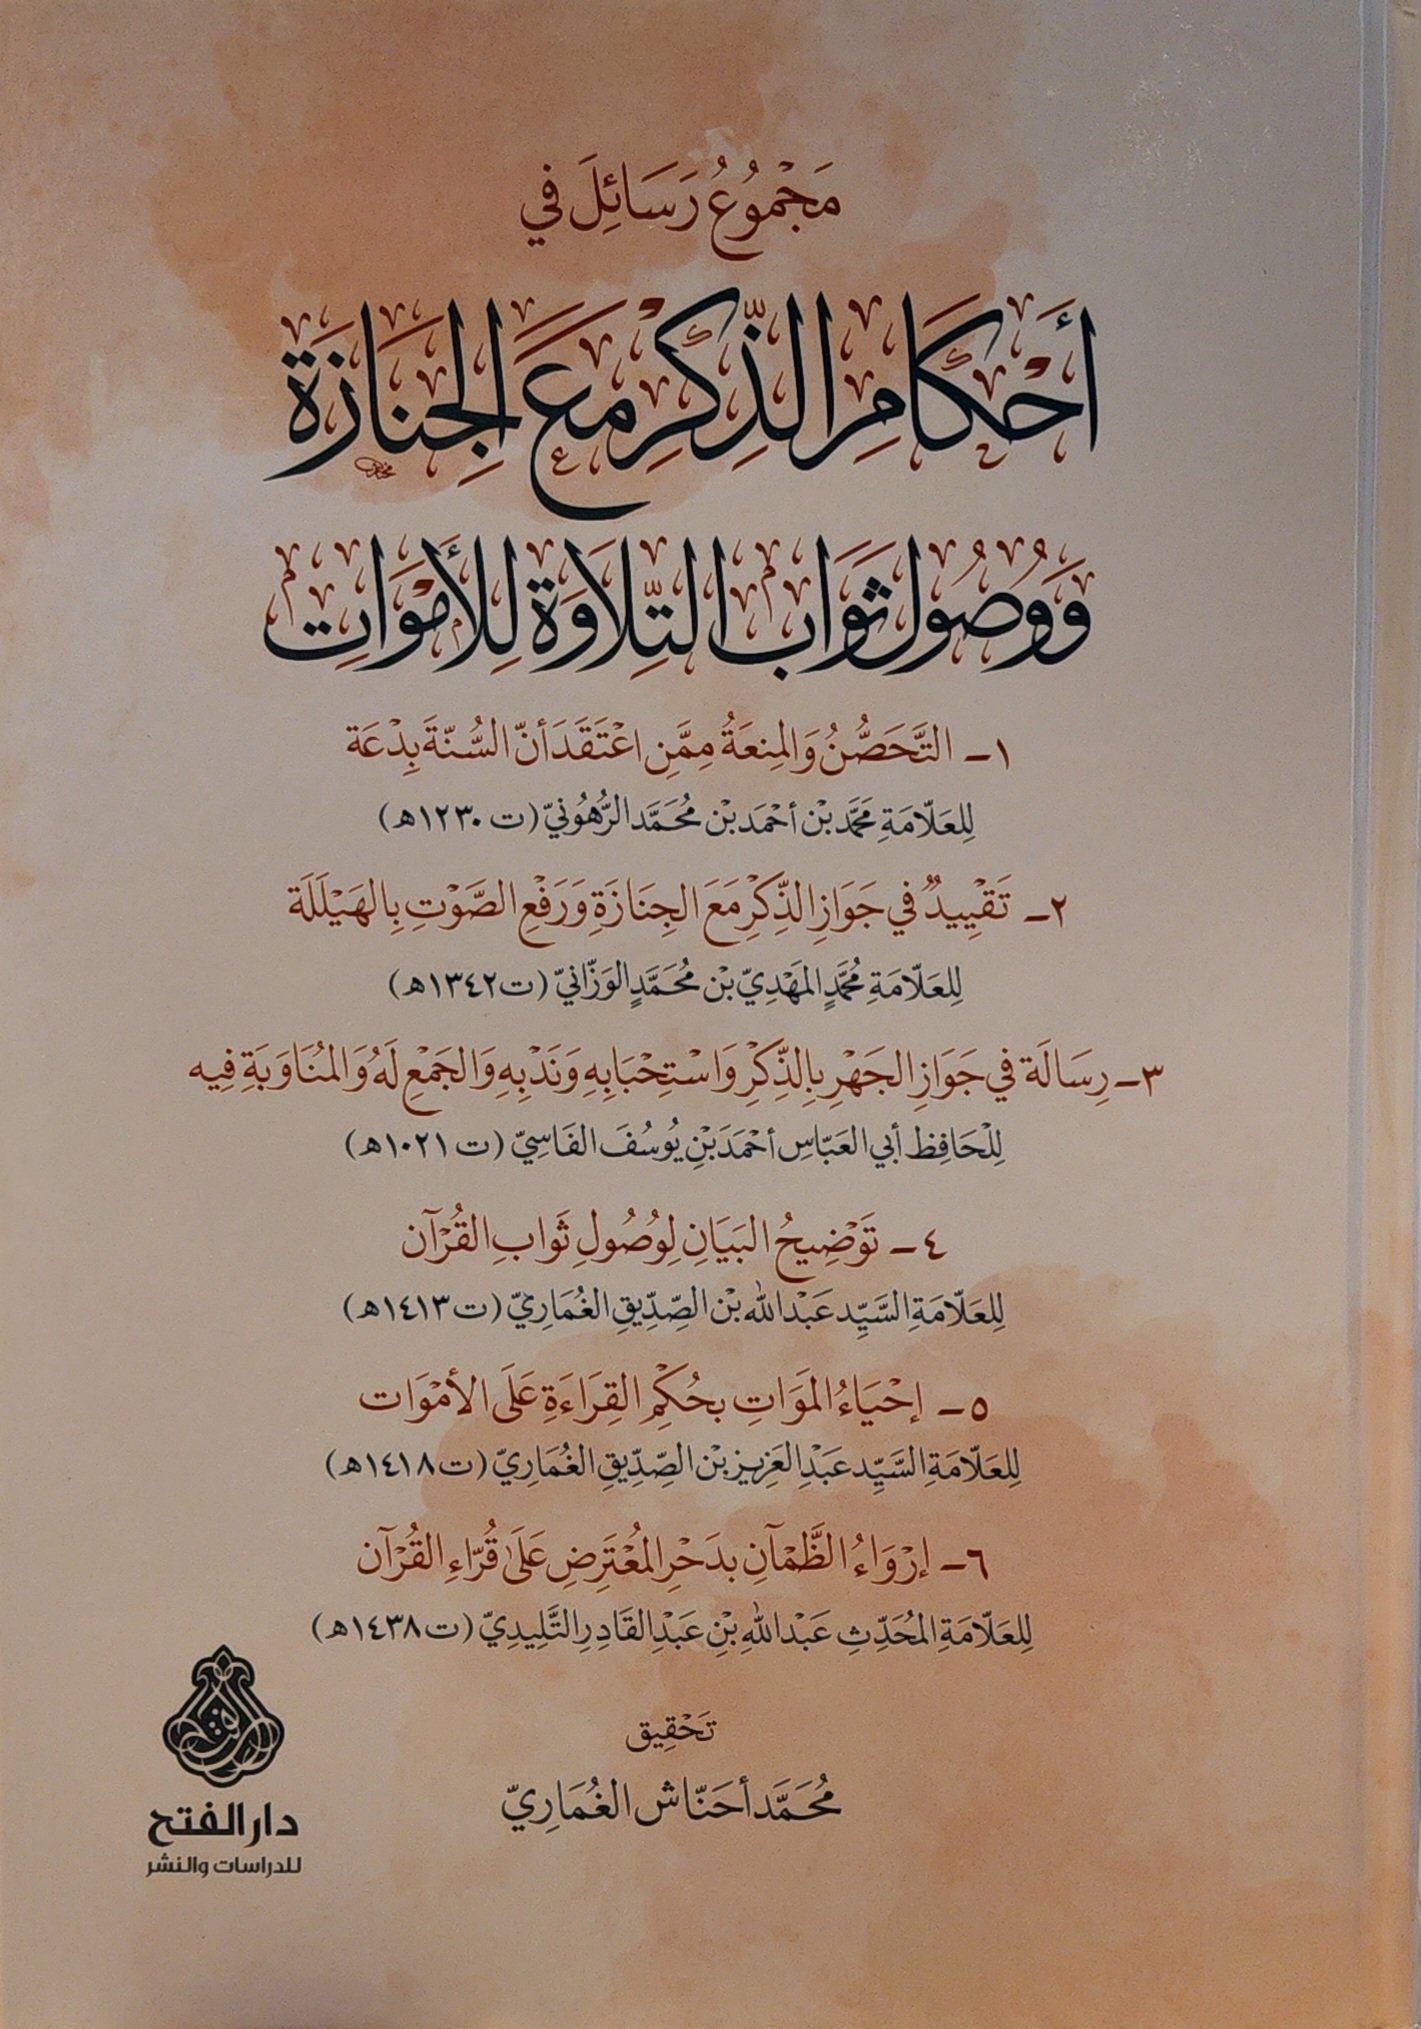 مَجْمُوعُ رَسَائِلَ فِي
أَحْكَامِ الذِّكْرِ مَعَ الجِنَازَةِ
وَوُصُولِ ثَوَابِ التِّلَاوَةِ لِلأَمْوَاتِ
١- التَّحَصُّنُ وَالمِنعَةُ مِمَّنِ اعْتَقَدَ أنّ السُّنّةَ بِدْعَة
لِلعَلّامَةِ مَحمَّد بْن أحْمَد بْن مُحَمَّد الرُّهُونيّ (ت ١٢٣٠هـ)
٢- تَقْيِيدٌ في جَوَازِ الذِّكْرِ مَعَ الجِنَازَةِ وَرَفْعِ الصَّوْتِ بِالهَيْلَلَة
لِلعَلّامَةِ مُحمَّدٍ المَهْدِيّ بْن مُحَمَّدٍ الوَزّانيّ (ت ١٣٤٢هـ)
٣- رِسَالَة في جَوَازِ الجَهْرِ بِالذِّكْرِ وَاسْتِحْبَابِهِ وَنَدْبِهِ وَالجَمْعِ لَهُ وَالمُنَاوَبَةِ فِيه
لِلْحَافِظِ أبي العَبّاسِ أحْمَدَ بْنِ يُوسُفَ الفَاسِيّ (ت ١٠٢١هـ)
٤- تَوْضِيحُ البَيَانِ لِوُصُولِ ثَوابِ القُرْآن
لِلعَلّامَةِ السَّيِّد عَبْد الله بْن الصِّدِّيقِ الغُمَاريّ (ت ١٤١٣هـ)
٥- إحْيَاءُ المَوَاتِ بحُكْمِ القِرَاءَةِ عَلَى الأمْوَات
لِلعَلّامَةِ السَّيِّد عَبْدِ العَزِيز بْن الصِّدِّيقِ الغُمَارِيّ (ت ١٤١٨هـ)
٦- إرْوَاءُ الظَّمْآنِ بدَحْرِ المُعْتَرِضِ عَلَى قُرّاءِ القُرْآن
لِلعَلّامَةِ المُحَدِّثِ عَبْدِ اللهِ بْنِ عَبْدِ القَادِرِ التَّلِيدِيّ (ت ١٤٣٨هـ)
تَحْقِيق
مُحَمَّد أحَنّاش الغُمَارِيّ
دار الفتح
للدراسات والنشر